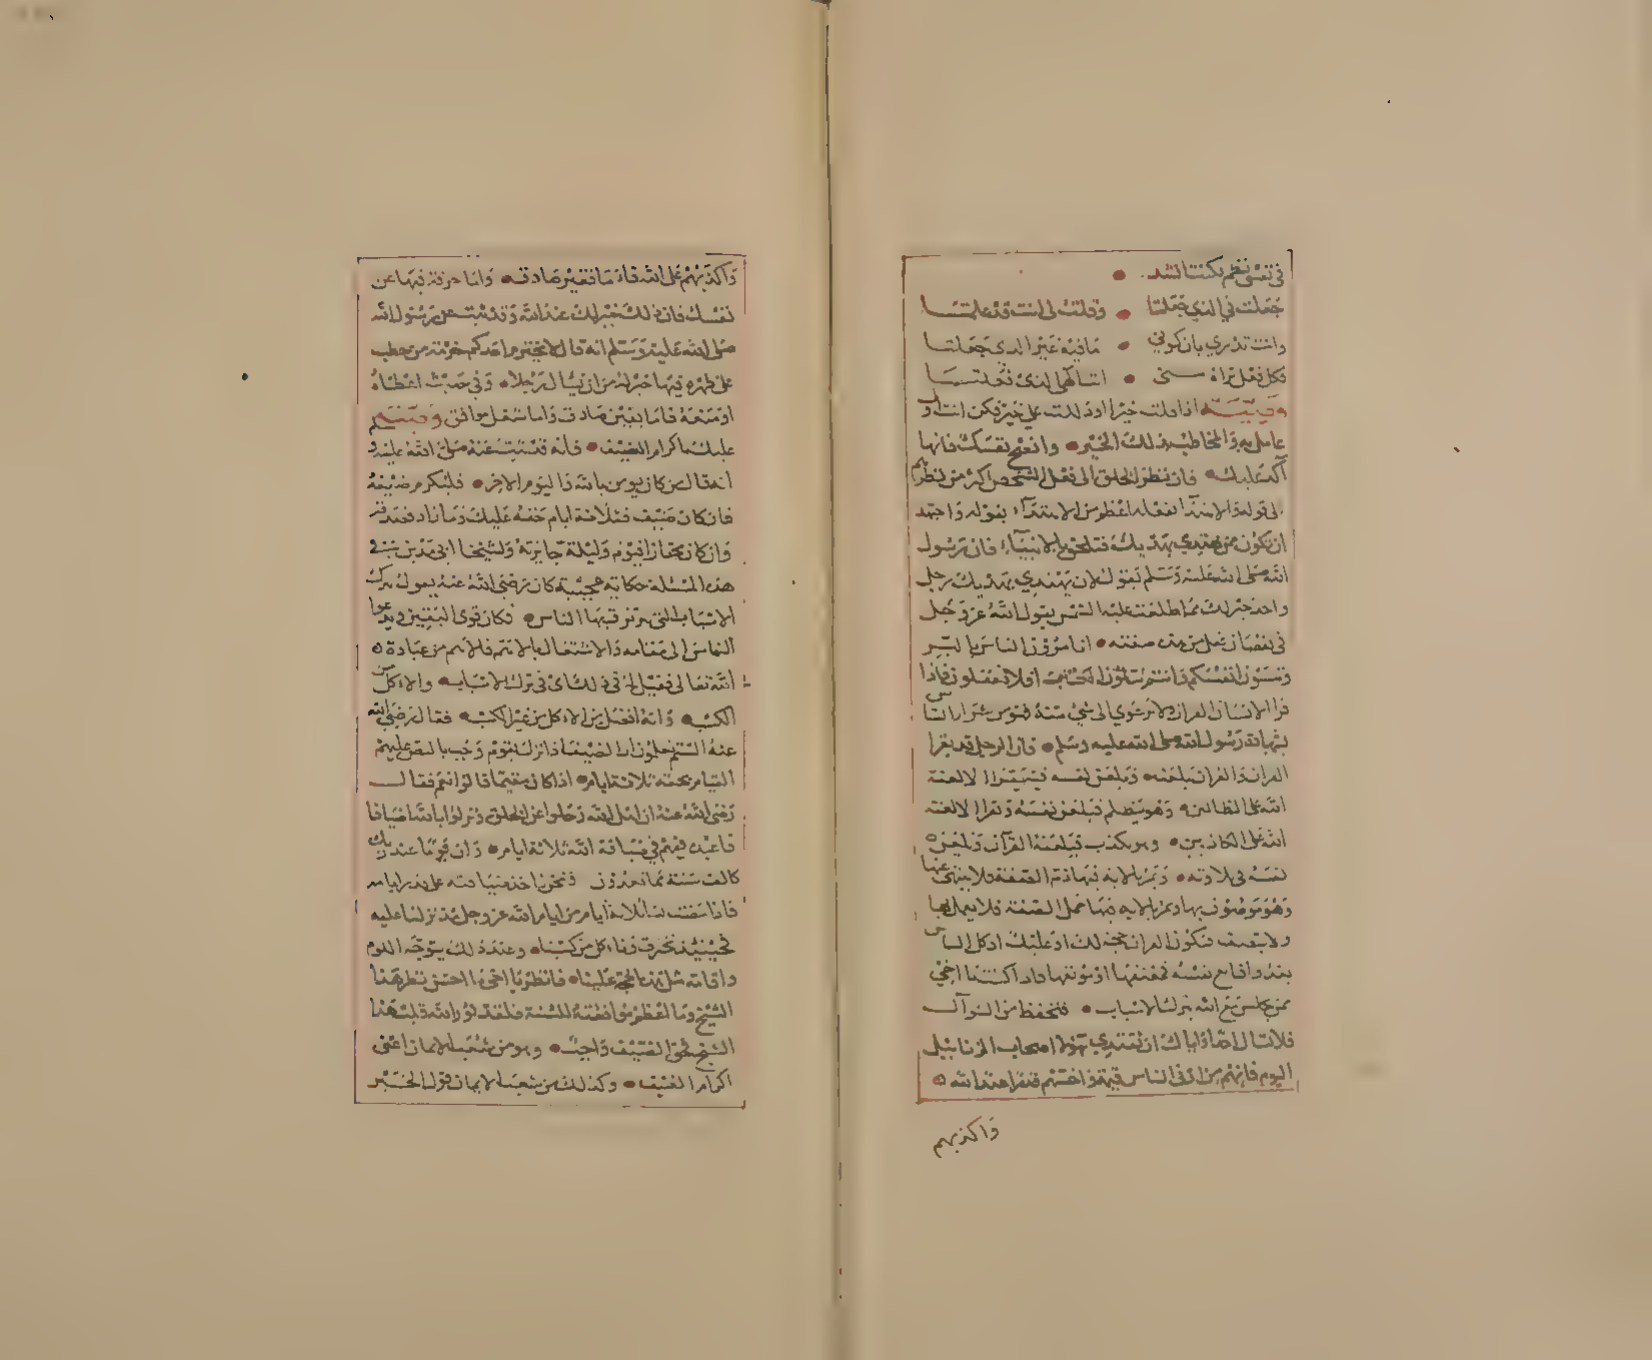 في تعنى نظم بكت انشد
جعلت في الذي جعلتا وقلت لي انت قد علمتا
وانت تدري بان كوني ما فيه غير الذي جعلتا
فكل فعل تراه منى انت الهي الذي فعلتا
وصية اذا قلت خيرا او دللت على خير فكن انت اول
عامل به والمخاطب بذلك الخير وانصح نفسك فانها
آكد عليك فان نظر الخلق الى فعل الشخص اكثر من نظرهم
الى قوله والاهتدا بفعله اعظم من الاهتداء بقوله واجتهد
ان تكون ممن يهتدي بهديك فتلحق بالانبياء فان رسول
الله صلى الله عليه وسلم يقول لان يهتدي بهديك رجل
واحد خير لك مما طلعت عليه الشمس يقول الله عز وجل
في نقصان عقل من هذه صفته اتامرون الناس بالبر
وتنسون انفسكم وانتم تتلون الكتاب افلا تعقلون فاذا
قرا الانسان القران ولا يرعوي الى شيء منه فهو من شرار الناس
بشهادة رسول الله صلى الله عليه وسلم فان الرجل قد يقرا
القران والقران يلعنه ويلعن نفسه فيه يقرا الا لعنة
الله على الظالمين وهو يظلم فيلعن نفسه ويقرا الا لعنة
الله على الكاذبين وهو يكذب فيلعنه القرآن ويلعن
نفسه في تلاوته ويمر بالاية فيها ذم الصفة فلا ينتهي عنها
وهو موصوف بها ويمر بالاية فيها حمد الصفة فلا يعمل بها
ولا يتصف فيكون القران حجة لك او عليك او كل الناس
يغدو فبائع نفسه فمعتقها او موبقها واذا كنت يا اخي
ممن يجلس مع الله بترك الاسباب فتحفظ من السوآل
فلا تسال احدا واياك ان تقتدي بهولا اصحاب الزنابيل
اليوم فانهم من ادنى الناس همة واخسهم قدرا عند الله
واكذبهم
واكذبهم على الله فاما فقير صادق واما حرفة فيها عز
نفسك فان ذلك خير لك عند الله وقد ثبت عن رسول الله
صلى الله عليه وسلم انه قال لا يحتزم احدكم حزمة من حطب
على ظهره فيها خير له من ان يسال رجلا وفي حديث اعطاه
او منعه فاما يقين صادق واما شغل موافق وصية
عليك باكرام الضيف فانه قد ثبت عنه صلى الله عليه و
انه قال من كان يومن بالله واليوم الاخر فليكرم ضيفه
فان كان ضيف فثلاثة ايام حقه عليك وما زاد فصدقة
وان كان مجتازا فيوم وليلة جايزته ولشيخنا ابي مدين في
هذه المسئلة حكاية عجيبة كان رضي الله عنه يقول بترك
الاسباب التي يرتزق بها الناس وكان قوى اليقين ويدعوا
الناس الى مقامه والاشتغال بالاهم فالاهم من عبادة
الله تعالى فقيل له في ذلك اى في ترك الاسباب والاكل من
الكسب وانه افضل من الاكل من غير الكسب فقال رضي الله
عنه الستم تعلمون ان الضيف اذا نزل بقوم وجب بالنص عليهم
القيام بحقه ثلاثة ايام اذا كان مقيما قالوا نعم فقال
رضي الله عنه ان اهل الله رحلوا عن الخلق ونزلوا بالله اضيافا
فهم في ضيافة الله ثلاثة ايام وان يوما عند ربك
كالف سنة مما تعدون فنحن ناخذ ضيافته على قدر ايامه
فاذا ثلاثة ايام من ايام الله عز وجل نزلنا عليه
فحينئذ نحترف وناكل من كسبنا وعند ذلك يتوجه اللوم
واقامة مثل هذا الحجة علينا فانظر يا اخى ما احسن نظر هذا
الشيخ وما اعظم موافقته للسنة فلقد نور الله قلب هذا
الشيخ فحق الضيف واجب وهو من شعب الايمان اعنى
اكرام الضيف وكذلك من شعب الايمان قول الخير